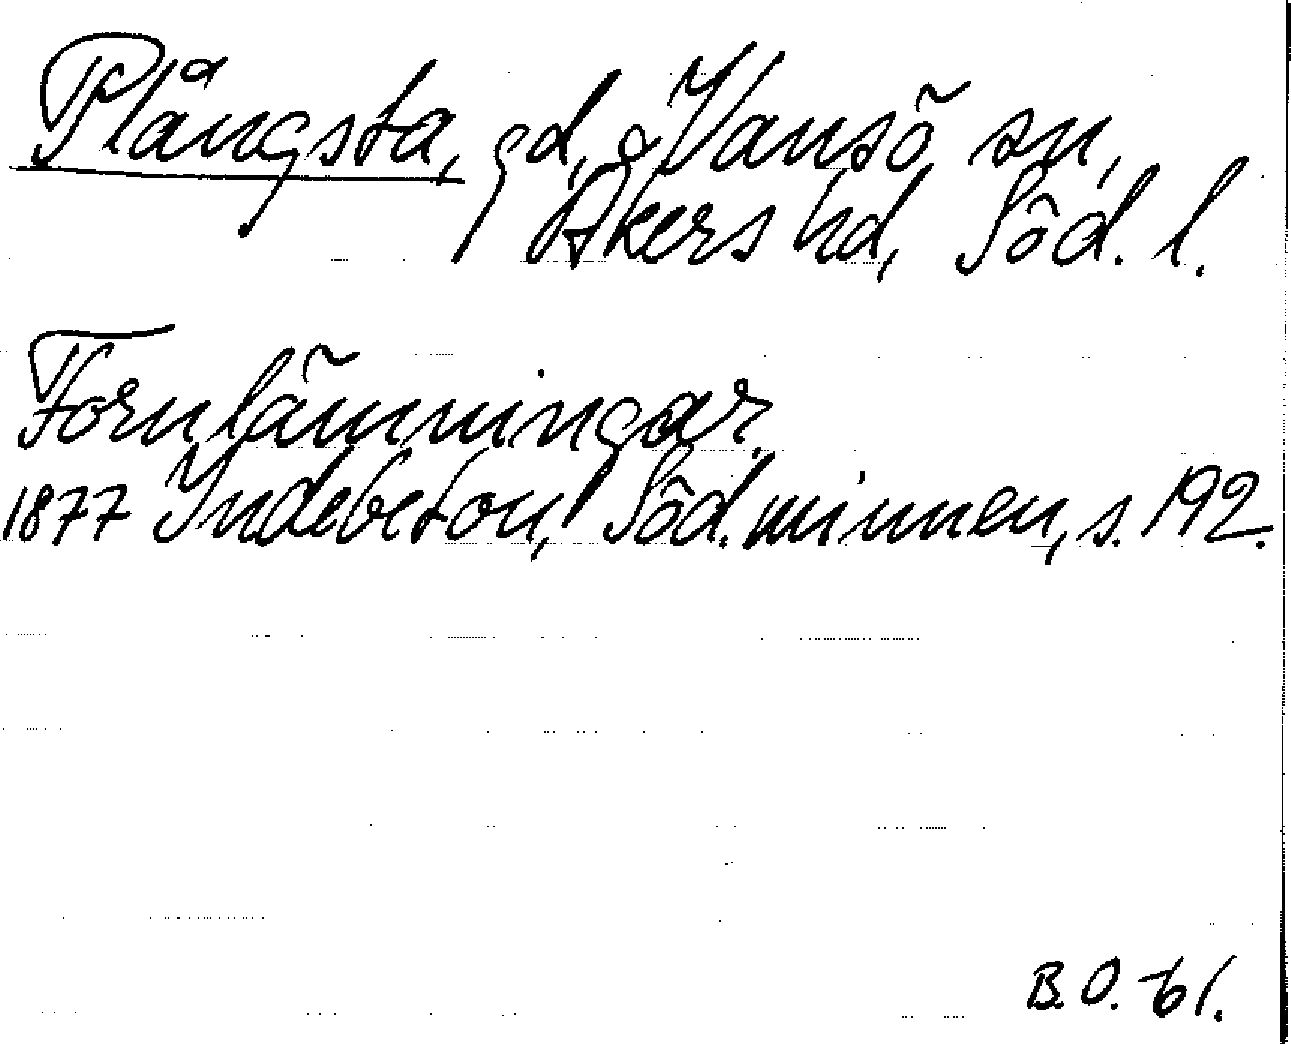 Plångsta, gd, Vansö sn,
Åkers hd, Söd. l.
Fornlämningar.
1877 Indebetou, Söd. minnen, s. 192.
B.O.-61.